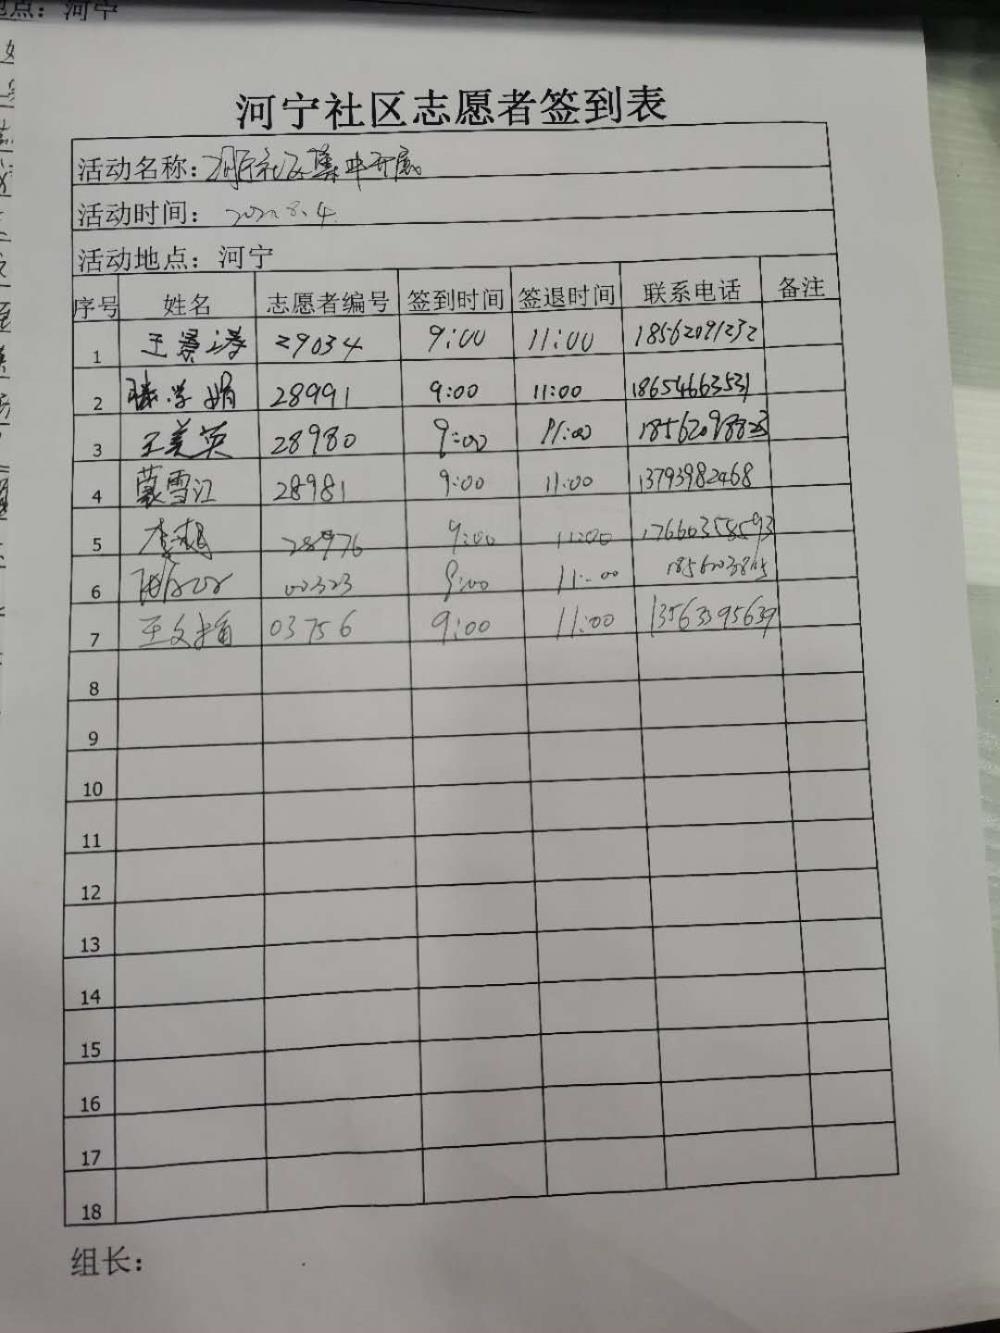 河宁社区志愿者签到表
活动名称：河宁社区集中开展
活动时间：2022.8.4
活动地点：河宁
序号 姓名 志愿者编号 签到时间 签退时间 联系电话 备注
1 王景涛 29034 9:00 11:00 18562091232
2 学娟 28991 9:00 11:00 18654663531
3 王美英 28980 9:00 11:00
4 蒙雪江 28981 9:00 11:00 13793982468
5 李 28976 9:00 11:00 17660358593
6 00323 9:00 11:00
7 王文 03756 9:00 11:00 13563395639
8
9
10
11
12
13
14
15
16
17
18
组长：